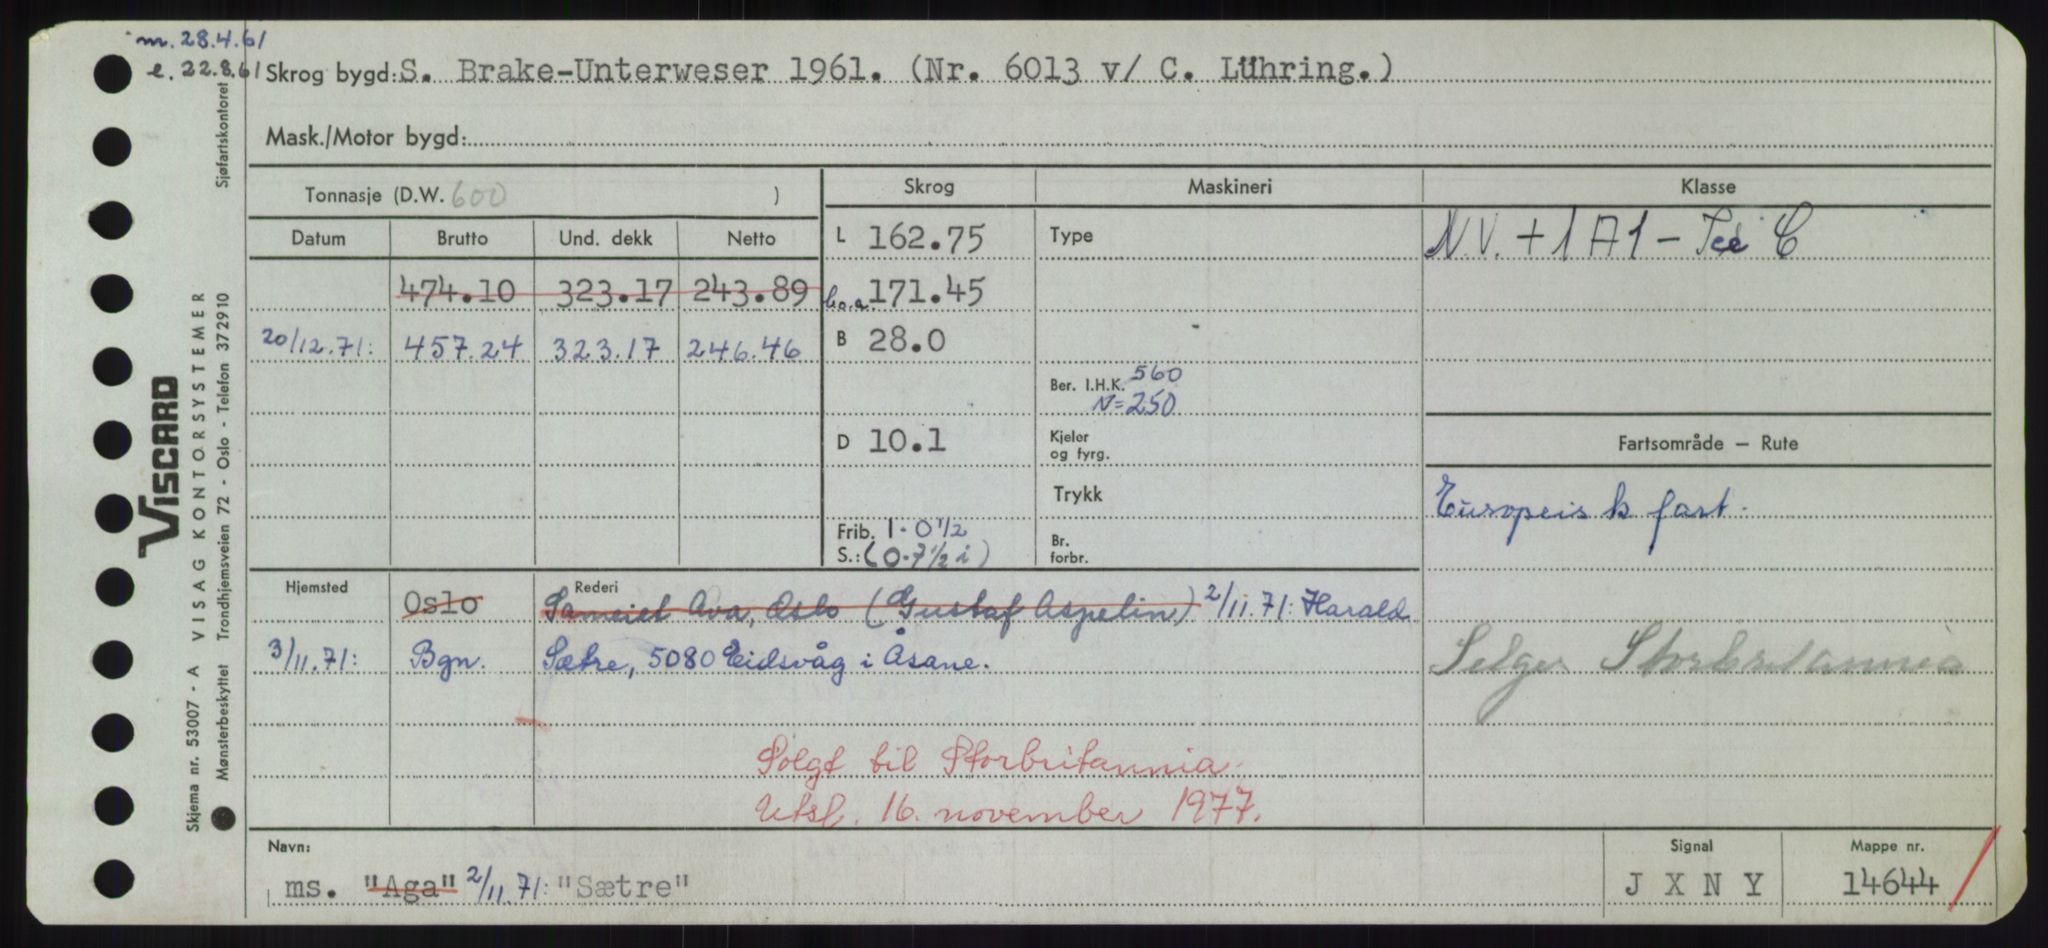 m. 28.4.61
e. 22.8.61 Skrog bygd: S. Brake-Unterweser 1961. (Nr. 6013 v/ C. Lühring.)
Mask./Motor bygd:
Tonnasje (D.W. 600 )
Skrog Maskineri Klasse
Datum Brutto Und. dekk Netto
L 162.75 Type N.V. + 1 A1 - Ice C
474.10 323.17 243.89 lo.a. 171.45
20/12.71: 457.24 323.17 246.46 B 28.0
Ber. I.H.K. 560
N=250
D 10.1 Kjeler
og fyrg.
Fartsområde – Rute
Trykk
Europeisk fart.
Frib. 1-0 1/2
S.: (0-7 1/2 i)
Br.
forbr.
Hjemsted Rederi
Oslo Sameiet Ava, Oslo (Gustaf Aspelin) 2/11.71: Harald
3/11.71: Bgn. Sætre, 5080 Eidsvåg i Åsane.
Selges Storbritannia
Solgt til Storbritannia.
Utsl. 16. november 1977.
Navn: Signal Mappe nr.
ms. "Aga" 2/11.71: "Sætre" J X N Y 14644
VISCARD
Skjema nr. 53007 - A VISAG KONTORSYSTEMER
Mønsterbeskyttet Trondhjemsveien 72 - Oslo - Telefon 372910 Sjøfartskontoret